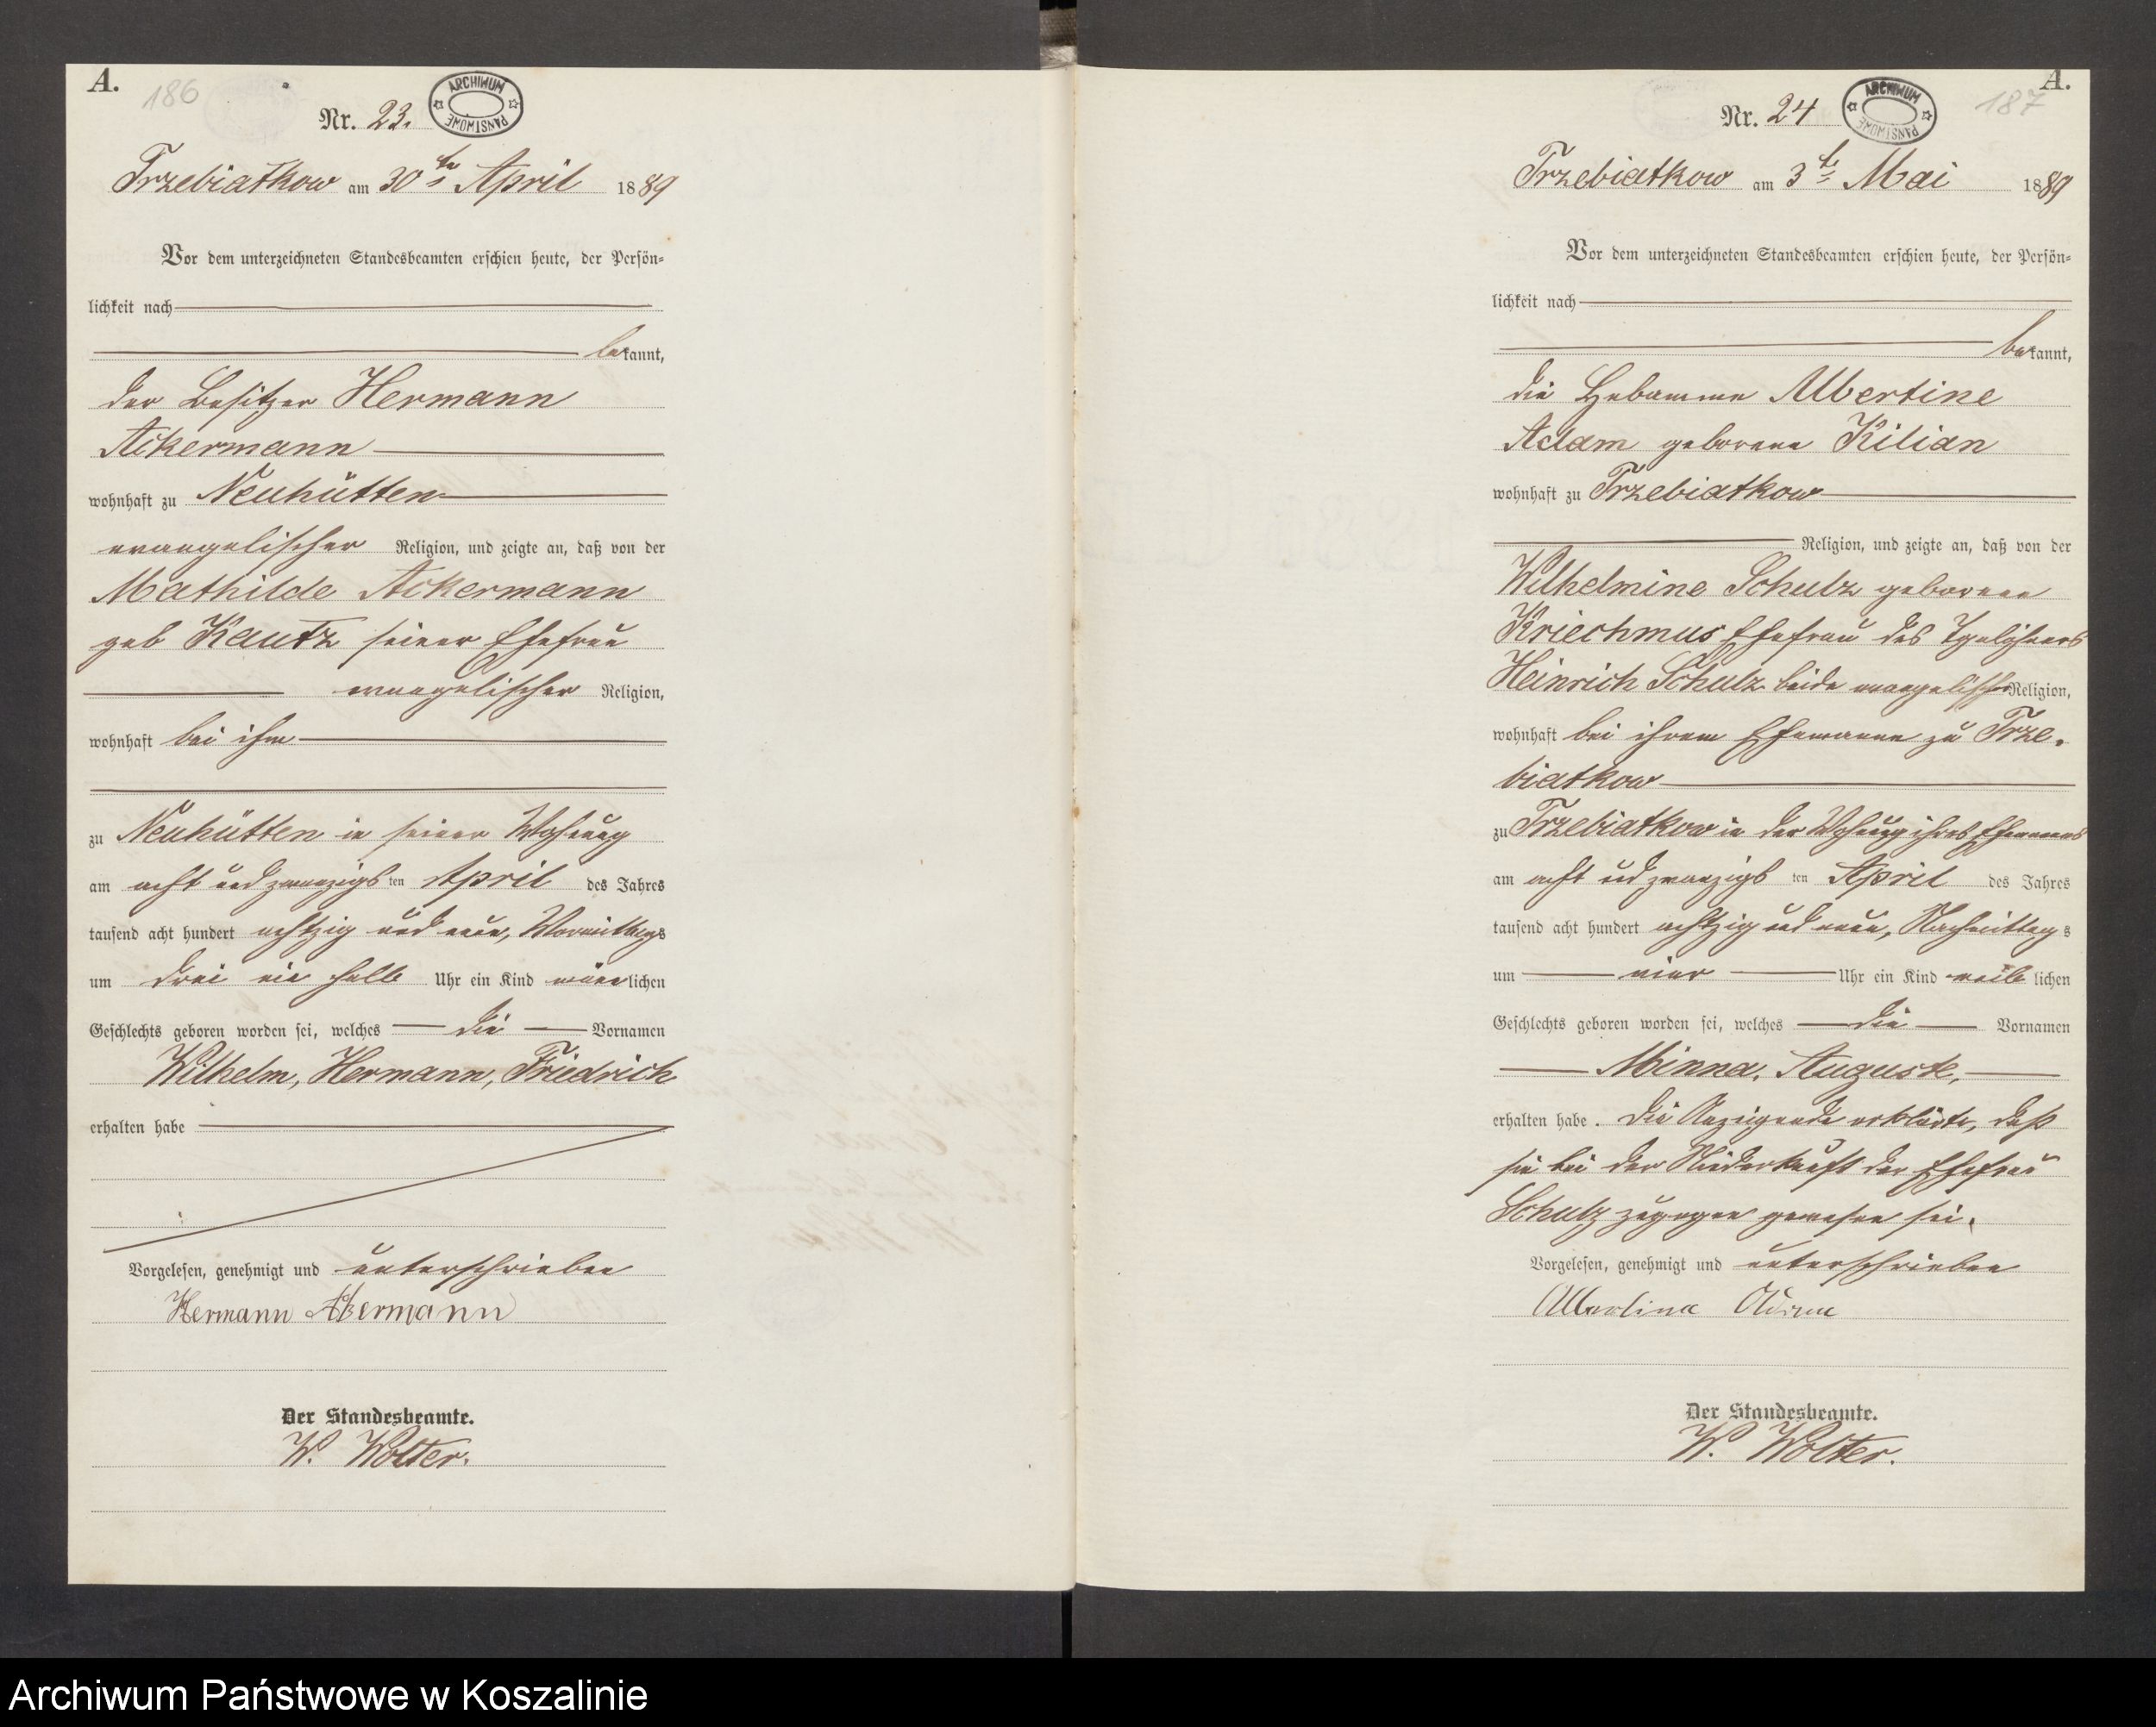 A.
186
Nr. 23.
ARCHIWUM PAŃSTWOWE
Trzebiatkow am 30ten April 1889
Vor dem unterzeichneten Standesbeamten erschien heute, der Persön-
lichkeit nach
bekannt,
der Besitzer Hermann
Ackermann
wohnhaft zu Neuhütten
evangelischer Religion, und zeigte an, daß von der
Mathilde Ackermann
geb Kautz seiner Ehefrau
evangelischer Religion,
wohnhaft bei ihm
zu Neuhütten in seiner Wohnung
am acht und zwanzigsten April des Jahres
tausend acht hundert achtzig und neun, Vormittags
um drei ein halb Uhr ein Kind männlichen
Geschlechts geboren worden sei, welches die Vornamen
Wilhelm, Hermann, Friedrich
erhalten habe
Vorgelesen, genehmigt und unterschrieben
Hermann Akermann
Der Standesbeamte.
W. Wolter.
A.
187
Nr. 24
ARCHIWUM PAŃSTWOWE
Trzebiatkow am 3te Mai 1889
Vor dem unterzeichneten Standesbeamten erschien heute, der Persön-
lichkeit nach
bekannt,
die Hebamme Albertine
Adam geborene Kilian
wohnhaft zu Trzebiatkow
Religion, und zeigte an, daß von der
Wilhelmine Schulz geborene
Kriechmus Ehefrau des Tgelöhners
Heinrich Schulz beide evangelischer Religion,
wohnhaft bei ihrem Ehemanne zu Trze-
biatkow
zu Trzebiatkow in der Wohnung ihres Ehemannes
am acht und zwanzigsten April des Jahres
tausend acht hundert achtzig und neun, Nachmittags
um vier Uhr ein Kind weiblichen
Geschlechts geboren worden sei, welches die Vornamen
Minna, Auguste,
erhalten habe. Die Anzeigende erklärte, daß
sie bei der Niederkunft der Ehefrau
Schulz zugegen gewesen sei.
Vorgelesen, genehmigt und unterschrieben
Albertine Adam
Der Standesbeamte.
W. Wolter.
Archiwum Państwowe w Koszalinie